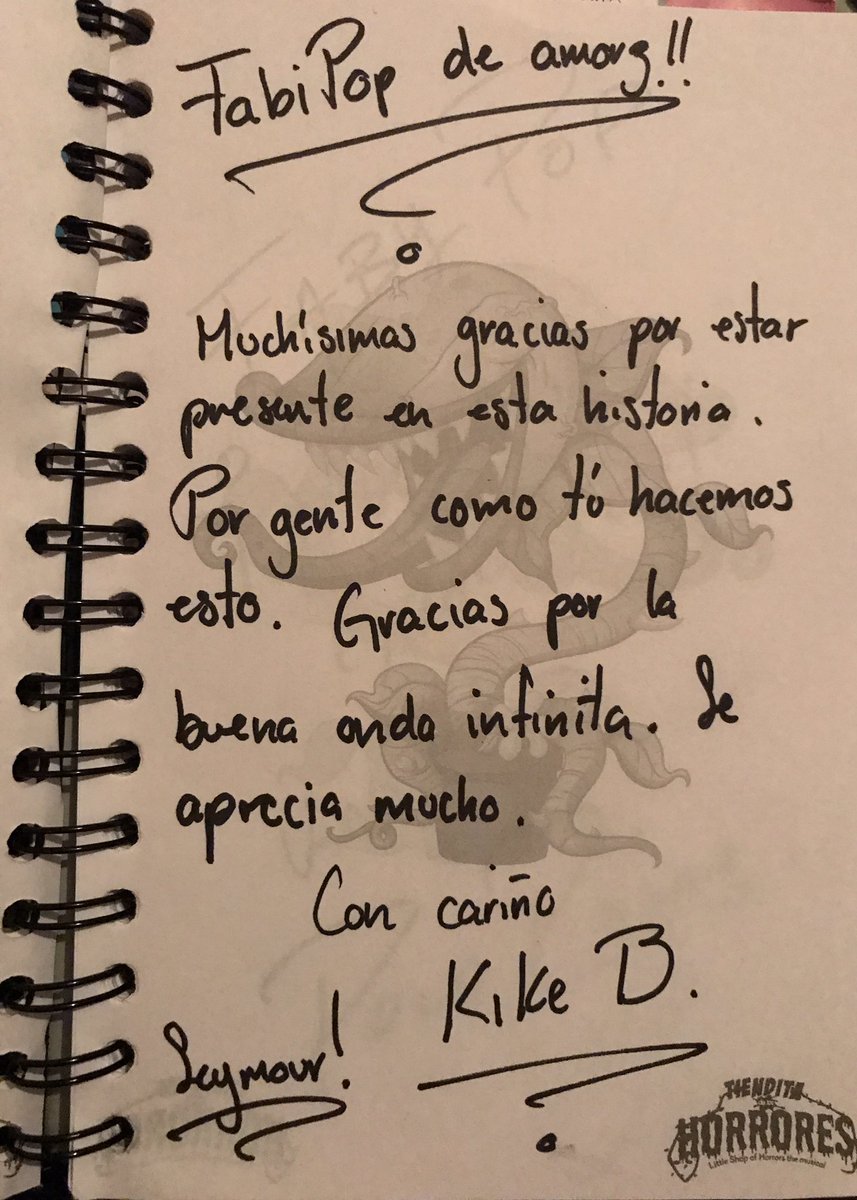 FabiPop de amorg!!
Muchísimas gracias por estar
presente en esta historia.
Por gente como tú hacemos
esto. Gracias por la
buena onda infinita. Se
aprecia mucho.
Con cariño
Kike B.
Seymour!
TIENDITA
HORRORES
Little Shop of Horrors the musical